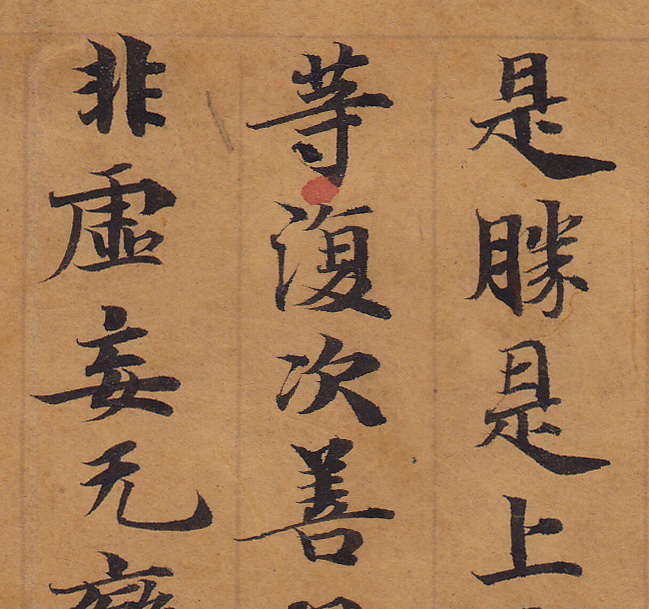 是勝是上
等復次善
非虛妄无